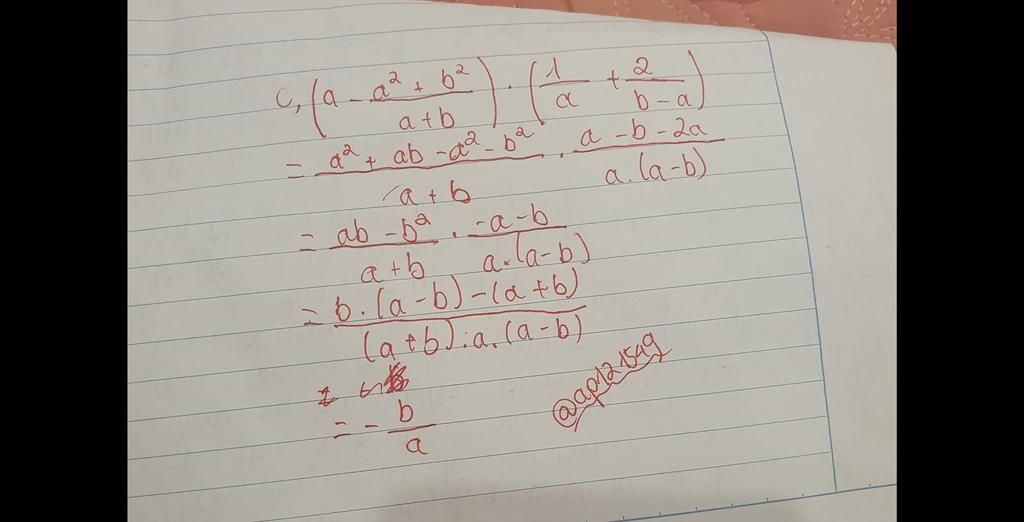 c, (a - \frac{a² + b²}{a+b}) · (\frac{1}{a} + \frac{2}{b-a})
= \frac{a² + ab - a² - b²}{a+b} · \frac{a - b - 2a}{a.(a-b)}
= \frac{ab - b²}{a+b} · \frac{-a-b}{a.(a-b)}
= \frac{b.(a-b) - (a+b)}{(a+b).a.(a-b)}
= - \frac{b}{a}
@ap121549